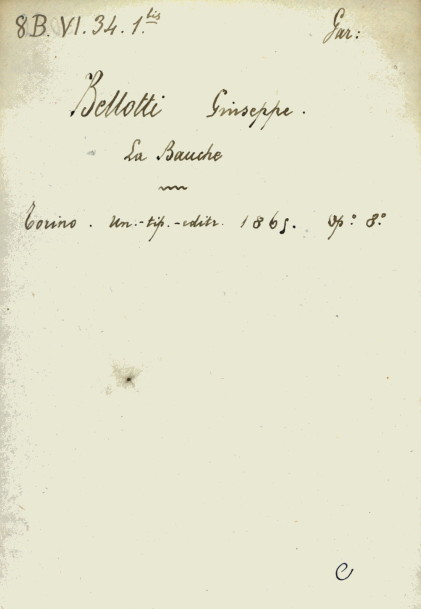 8B. VI. 34. 1.bis Gar:
Bellotti Giuseppe.
La Bauche
Torino. Un.-tip.-editr. 1865. Op° 8°
C